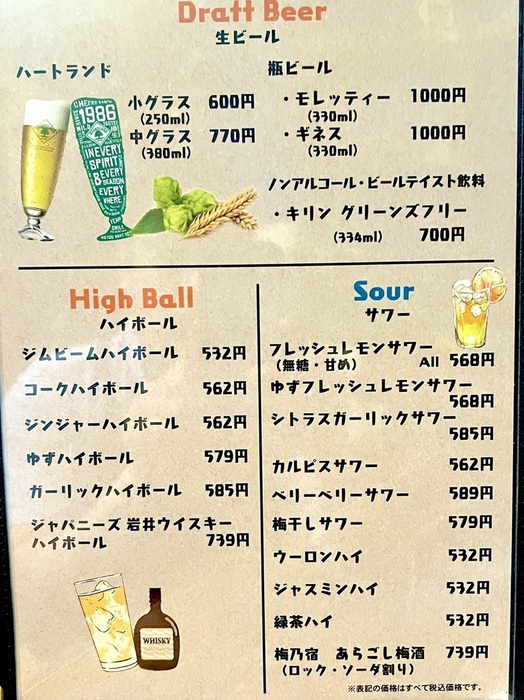 Draft Beer
生ビール
ハートランド
小グラス 600円
(250ml)
中グラス 770円
(380ml)
CHEERS
1986
IN EVERY
SPIRIT
& EVERY
SEASON
EVERY
WHERE
YEAH
SMILE
瓶ビール
・モレッティー 1000円
(330ml)
・ギネス 1000円
(330ml)
ノンアルコール・ビールテイスト飲料
・キリン グリーンズフリー
(334ml) 700円
High Ball
ハイボール
ジムビームハイボール 532円
コークハイボール 562円
ジンジャーハイボール 562円
ゆずハイボール 579円
ガーリックハイボール 585円
ジャパニーズ 岩井ウイスキー
ハイボール 739円
WHISKY
Sour
サワー
フレッシュレモンサワー
(無糖・甘め) All 568円
ゆずフレッシュレモンサワー
568円
シトラスガーリックサワー
585円
カルピスサワー 562円
ベリーベリーサワー 589円
梅干しサワー 579円
ウーロンハイ 532円
ジャスミンハイ 532円
緑茶ハイ 532円
梅乃宿 あらごし梅酒 739円
(ロック・ソーダ割り)
※表記の価格はすべて税込価格です。